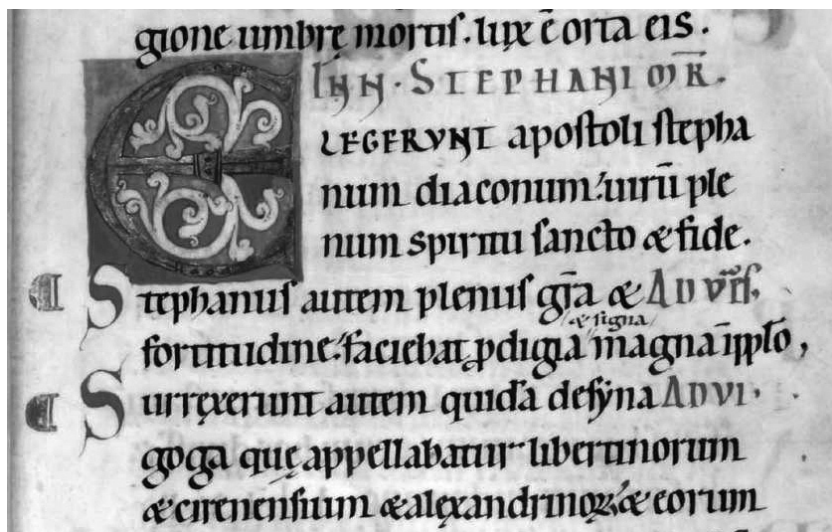 gione umbrę mortis. lux ē orta eis.
INN. STEPHANI MR̄.
ELEGERUNT apostoli stepha
num diaconum: uirū ple
num spiritu sancto & fide.
Stephanus autem plenus gr̄a & AD VR̄S,
& signa
fortitudine: faciebat ꝓdigia magna ī pplō,
Surrexerunt autem quidā de syna AD VI.
goga quę appellabatur libertinorum
& cirenensium & alexandrinoꝝ, & eorum